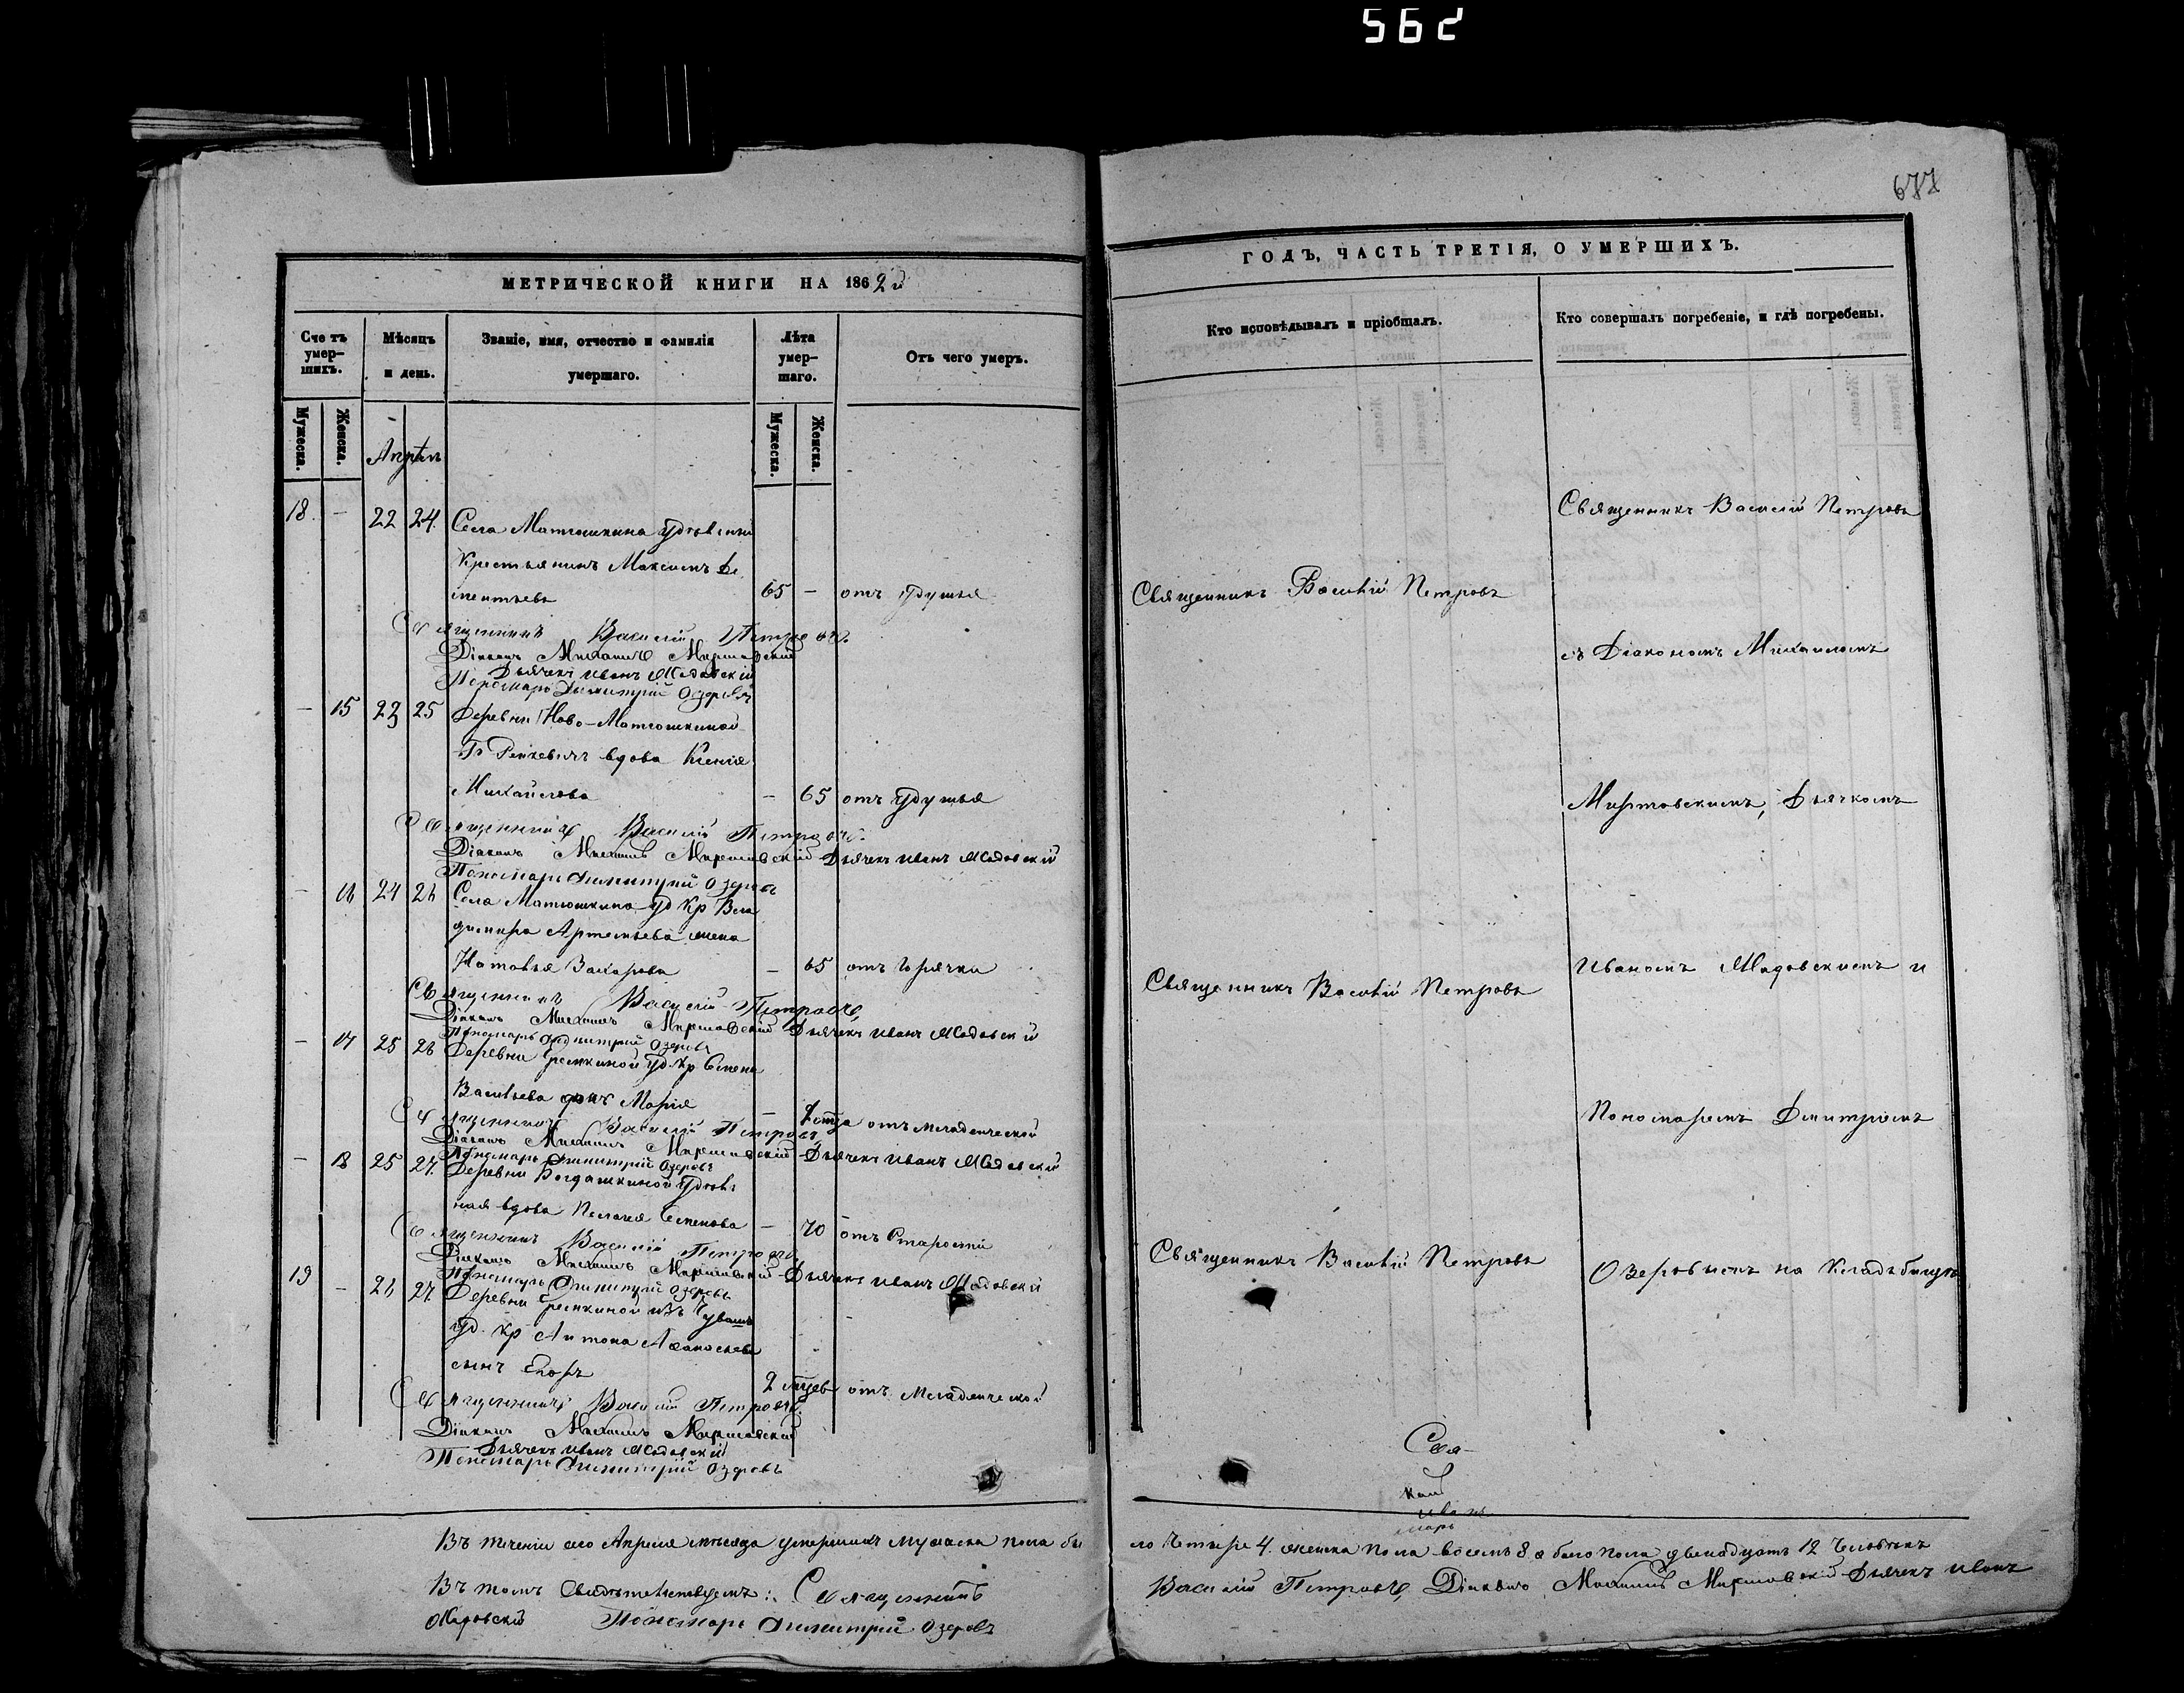 562
677
МЕТРИЧЕСКОЙ КНИГИ НА 1862й
Сче тъ умер-шихъ.
Мужеска.
Женска.
Мѣсяцъ и день.
Званіе, имя, отчество и фамилія умершаго.
Лѣта умер-шаго.
Мужеска.
Женска.
Отъ чего умеръ.
Апрѣль
18. - 22 24. Села Матюшкина
Крестьянинъ Максимъ Де
ментьевъ 65 - отъ удушья
Священникъ Василій Петровъ
Діаконъ Михаилъ
Дьячекъ Иванъ
Пономарь Димитрій Озеровъ
- 15 23 25 Деревни Ново-Матюшкиной
вдова Ксенія
Михайлова - 65 отъ удушья
Священникъ Василій Петровъ
Діаконъ Михаилъ Дьячекъ Иванъ
Пономарь Димитрій Озеровъ
- 16 24 26 Села Матюшкина уд кр Вла
димира Артемьева жена
Наталья Захарова - 65 отъ горячки
Священникъ Василій Петровъ
Діаконъ Михаилъ Дьячекъ Иванъ
Пономарь Димитрій Озеровъ
- 17 25 26 Деревни уд. кр Семена
Васильева дочь Марія - отъ младенческой
Священникъ Василій Петровъ
Діаконъ Михаилъ Дьячекъ Иванъ
Пономарь Димитрій Озеровъ
- 18 25 27. Деревни Богдашкиной удѣль
ная вдова Пелагея Семенова - 70 отъ Старости
Священникъ Василій Петровъ
Діаконъ Михаилъ Дьячекъ Иванъ
Пономарь Димитрій Озеровъ
19 - 26 27. Деревни изъ Чувашъ
уд. кр Антона Афанасьева
сынъ Егоръ 2 отъ Младенческой
Священникъ Василій Петровъ
Діаконъ Михаилъ
Дьячекъ Иванъ
Пономарь Димитрій Озеровъ
Въ теченіи сего Апреля мѣсяца умершихъ мужеска пола бы
Въ томъ свидѣтельствуемъ: Священникъ
Пономарь Димитрій Озеровъ
ГОДЪ, ЧАСТЬ ТРЕТІЯ, О УМЕРШИХЪ.
Кто исповѣдывалъ и пріобщалъ.
Кто совершалъ погребеніе, и гдѣ погребены.
Священникъ Василій Петровъ
Священникъ Василій Петровъ
съ Діакономъ Михаиломъ
Миртовскимъ, Дьячкомъ
Священникъ Василій Петровъ
Иваномъ и
Пономаремъ Димитріемъ
Священникъ Василій Петровъ
Озеровымъ на Кладбищѣ
Свя-
ло четыре 4. женска пола восемь 8 а обоего пола двенадцать 12 Человѣкъ
Василій Петровъ, Діаконъ Михаилъ Миртовскій Дьячекъ Иванъ